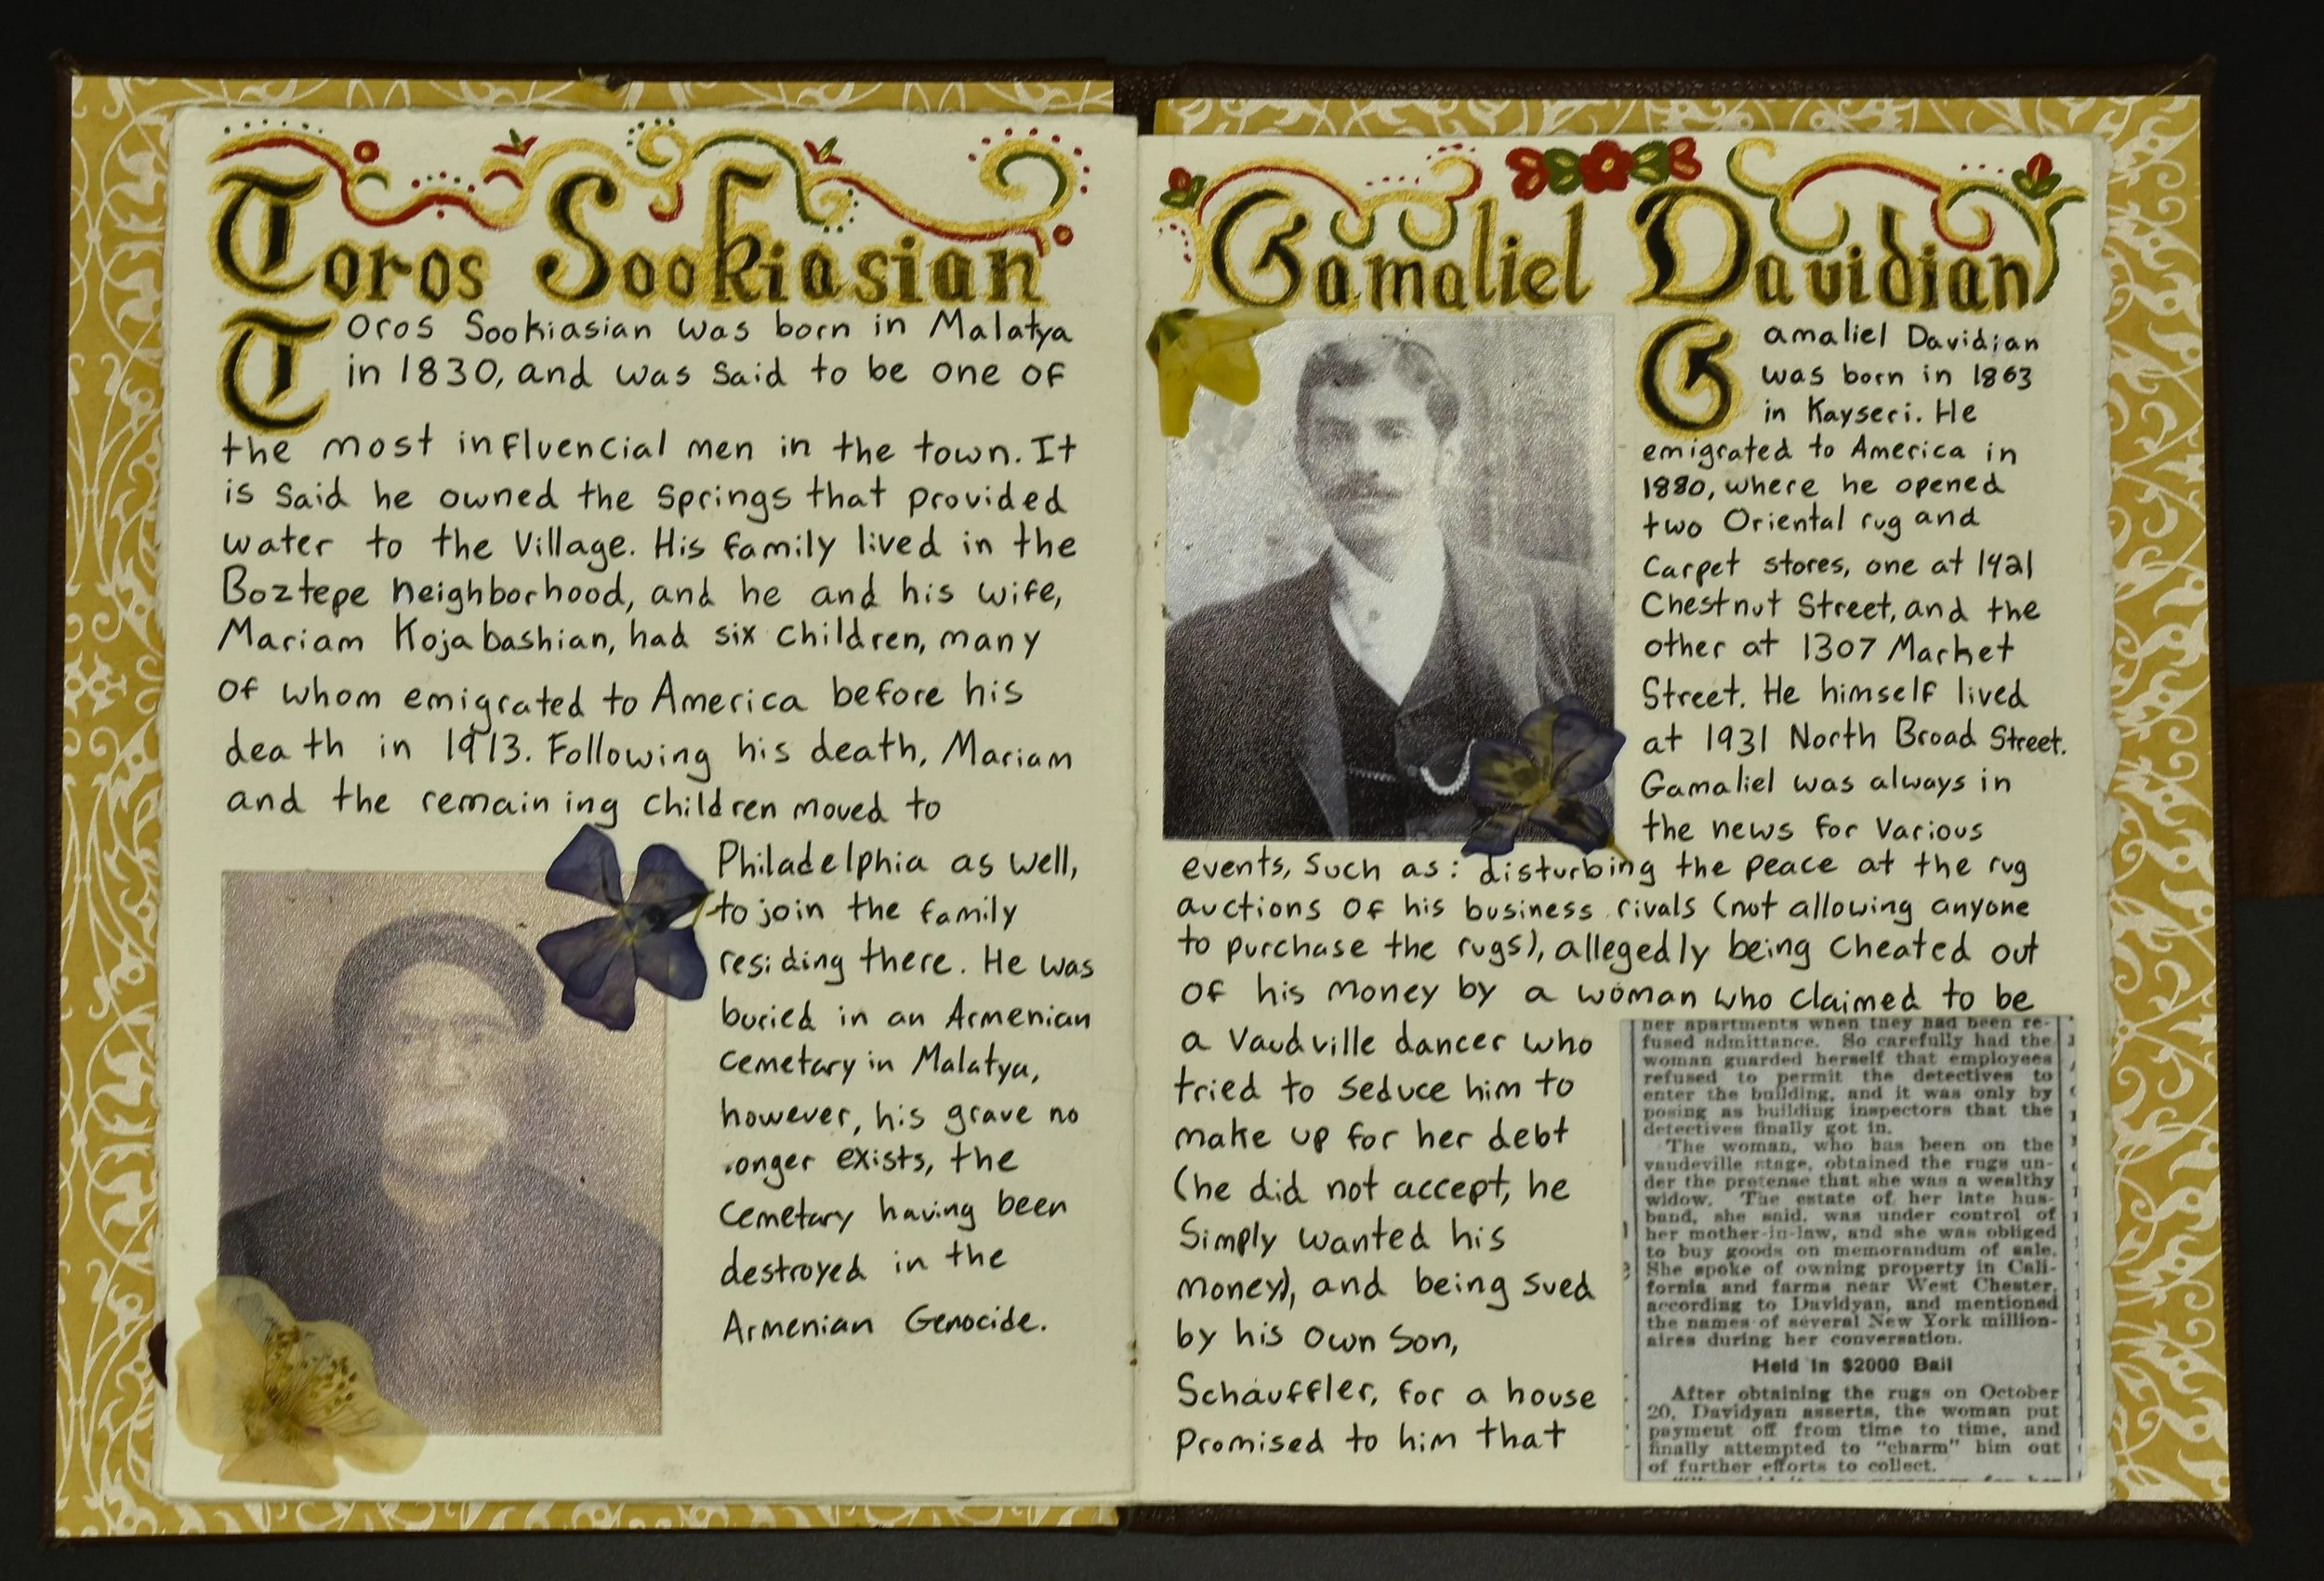 Toros Sookiasian
Toros Sookiasian was born in Malatya
in 1830, and was said to be one of
the most influencial men in the town. It
is said he owned the springs that provided
water to the village. His family lived in the
Boztepe neighborhood, and he and his wife,
Mariam Kojabashian, had six children, many
of whom emigrated to America before his
death in 1913. Following his death, Mariam
and the remaining children moved to
Philadelphia as well,
to join the family
residing there. He was
buried in an Armenian
cemetary in Malatya,
however, his grave no
longer exists, the
cemetary having been
destroyed in the
Armenian Genocide.
Gamaliel Davidian
Gamaliel Davidian
was born in 1863
in Kayseri. He
emigrated to America in
1880, where he opened
two Oriental rug and
carpet stores, one at 1421
Chestnut Street, and the
other at 1307 Market
Street. He himself lived
at 1931 North Broad Street.
Gamaliel was always in
the news for various
events, such as: disturbing the peace at the rug
auctions of his business rivals (not allowing anyone
to purchase the rugs), allegedly being cheated out
of his money by a woman who claimed to be
a Vaudville dancer who
tried to seduce him to
make up for her debt
(he did not accept, he
simply wanted his
money), and being sued
by his own son,
Schauffler, for a house
promised to him that
her apartments when they had been re-
fused admittance. So carefully had the
woman guarded herself that employees
refused to permit the detectives to
enter the building, and it was only by
posing as building inspectors that the
detectives finally got in.
The woman, who has been on the
vaudeville stage, obtained the rugs un-
der the pretense that she was a wealthy
widow. The estate of her late hus-
band, she said, was under control of
her mother-in-law, and she was obliged
to buy goods on memorandum of sale.
She spoke of owning property in Cali-
fornia and farms near West Chester,
according to Davidyan, and mentioned
the names of several New York million-
aires during her conversation.
Held in $2000 Bail
After obtaining the rugs on October
20, Davidyan asserts, the woman put
payment off from time to time, and
finally attempted to "charm" him out
of further efforts to collect.